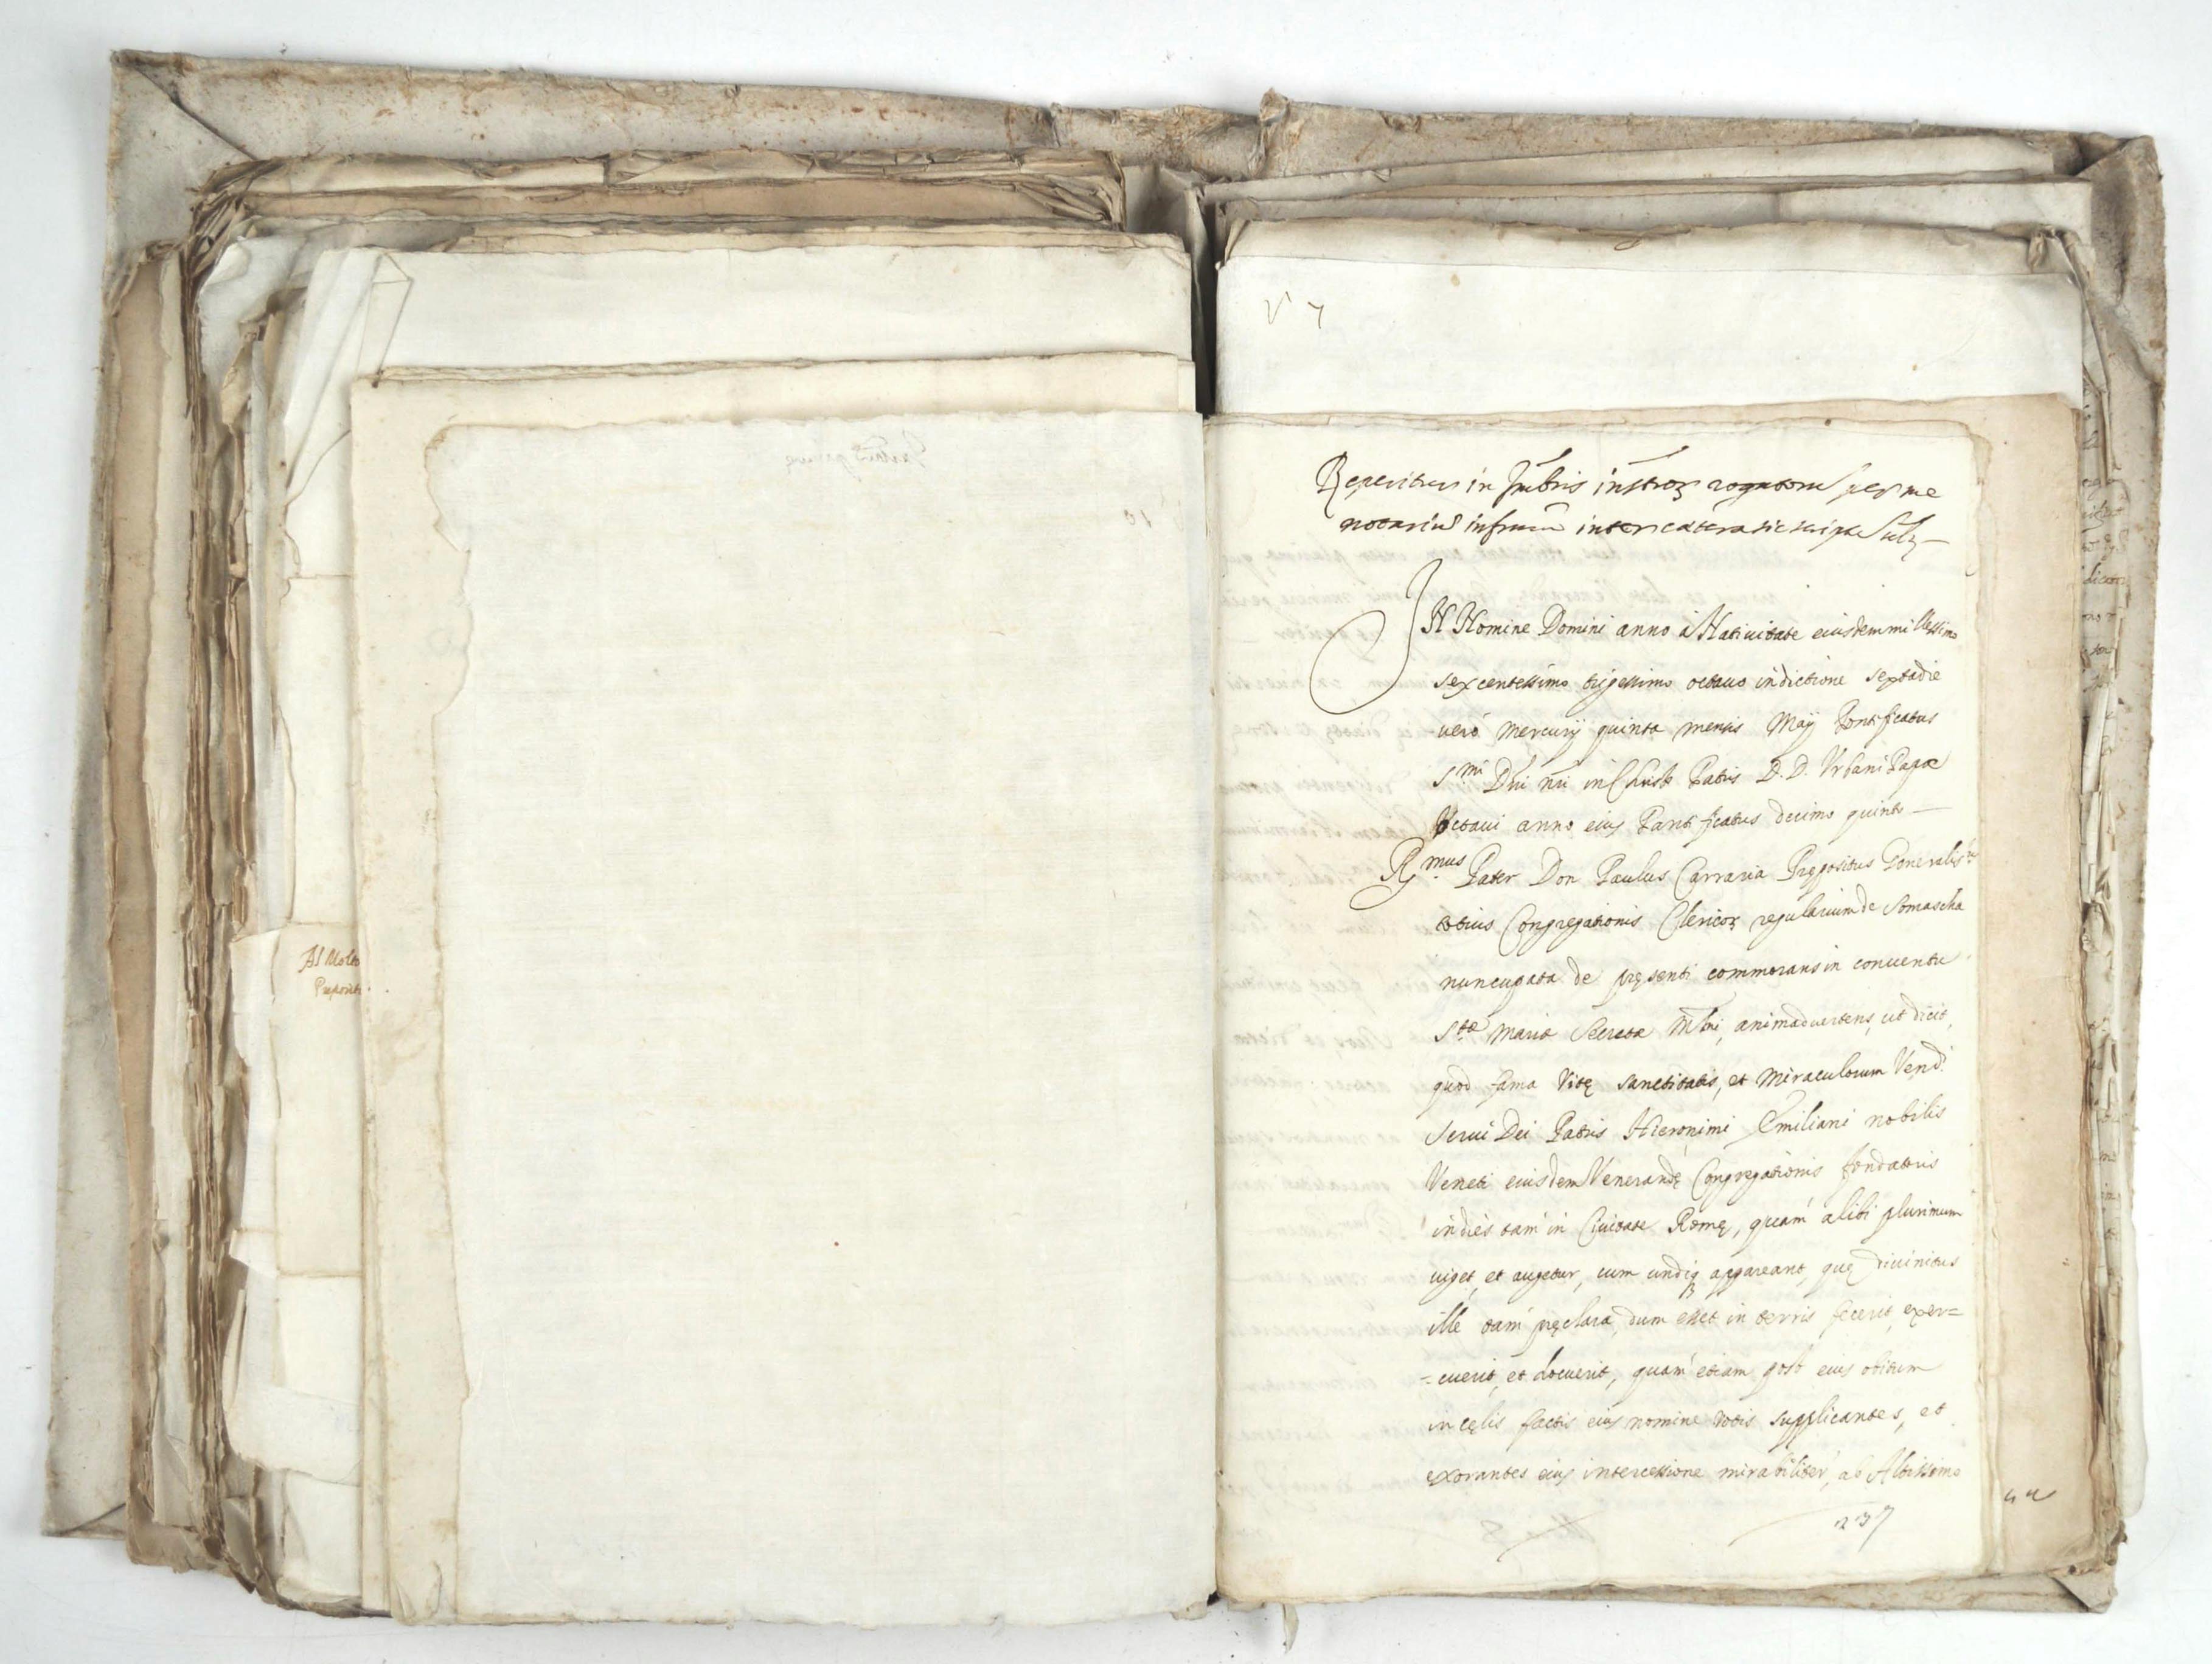 Al Molto
Preposito
Reperitur in Imbris instrõꝝ rogatorũ per me
notariũ infrũm inter cætera sic scriptũ
IN Nomine Domini anno à Nativitate eiusdem millessimo
sexcentessimo trigessimo octavo indictione septa die
verò Mercurij quinta mensis Maij Pontificatus
S.mi Dñi nñi in Christo Patris D. D. Vrbani Papæ
Octavi anno eius Pontificatus decimo quinto —
R.mus Pater Don Paulus Carraria Prępositus Generalis
totius Congregationis Clericoꝝ regularium de Somascha
nuncupata de pręsenti commorans in conventu
S.tæ Mariæ Secretæ Młni, animadvertens, ut dicit,
quod fama Vitę sanctitatis, et Miraculorum Vend.
Servi Dei Patris Hieronimi Æmiliani nobilis
Veneti eiusdem Venerandę Congregationis fondatoris
indies tam in Civitate Romę, quam alibi plurimum
viget, et augetur, cum undiq; appareant, quę divinitus
ille tam pręclara, dum esset in terris fecerit, exer=
=cuerit, et docuerit, quam etiam post eius obitum
in cęlis factis eius nomine votis supplicantes, et
exorantes eius intercessione mirabiliter, ab Altissimo
237